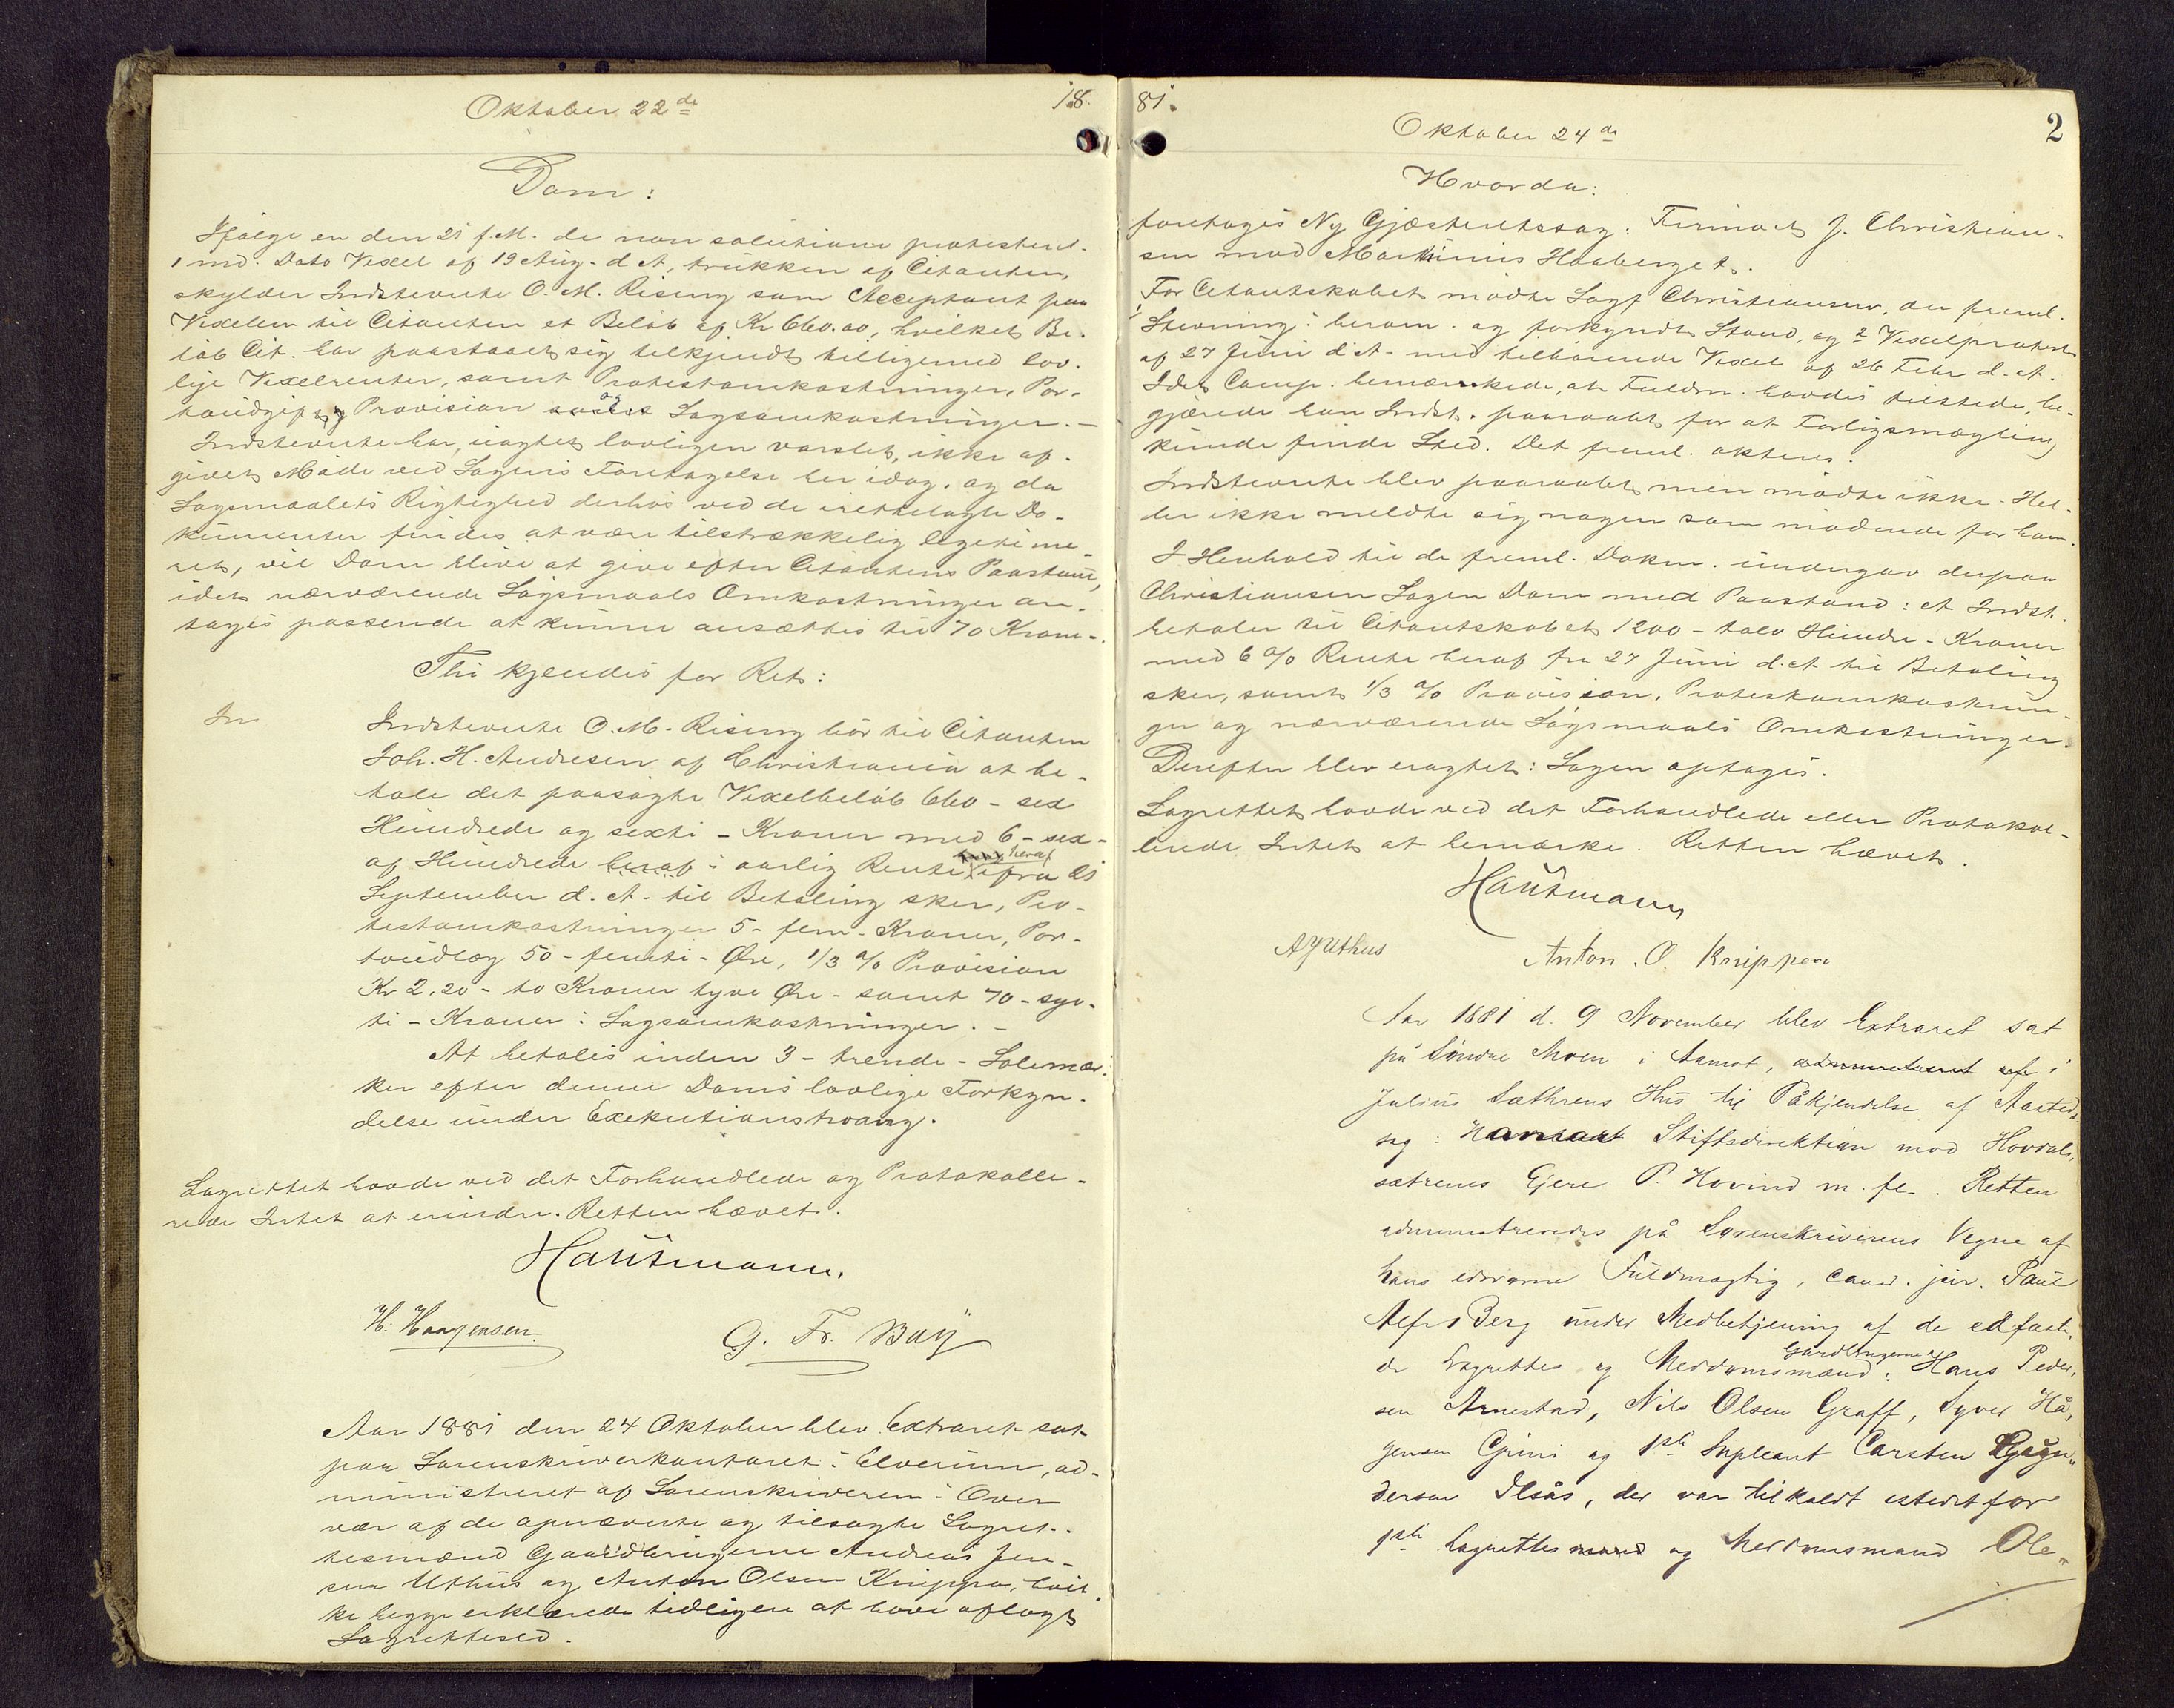 Oktober 22de
18
Dom:
Ifølge en den 21 f.M. de non solutione protesteret
1 md. Dato Vexel af 19 Aug. d A, trukken af Citanten,
skylder Indstevnte O. M. Rising som Acceptant paa
Vexelen til Citanten et Beløb af Kr 660.00, hvilket Be-
løb Cit. har paastaaet sig tilkjendt tilligemed lov-
lige Vexelrenter, samt Protestomkostninger, Por-
toudgift og Provision og Sagsomkostninger. -
Indstevnte har, uagtet lovligen varslet, ikke af-
givet Møde ved Sagens Foretagelse her idag. og da
Sagsmaalets Rigtighed derhos ved de irettelagte Do-
kumenter findes at være tilstrækkelig legitime-
ret, vil Dom blive at give efter Citantens Paastand,
idet nærværende Søgsmaals Omkostninger an-
tages passende at kunne ansættes til 70 Kroner.
Thi kjendes for Ret:
Indstevnte O. M. Rising bør til Citanten
Joh. H. Andresen af Christiania at be-
tale det paasøgte Vexelbeløb 660 - sex
Hundrede og sexti - Kroner med 6 - sex -
af Hundrede heraf i aarlig Rente heraf fra 21
September d. A. til Betaling sker, Pro-
testomkostninger 5 - fem - Kroner, Por-
toudlæg 50 - femti - Øre, 1/3 % Provision
Kr 2,20 - to Kroner tyve Øre - samt 70 - syt-
ti - Kroner i Sagsomkostninger. -
At betales inden 3 - trende - Solemær-
ker efter denne Doms lovlige Forkyn-
delse under Exekutionstvang.
Lagrettet havde ved det Forhandlede og Protokolle-
rede Intet at erindre. Retten hævet.
Hansmann.
H. Haagensen. G. Fr. Bay
Aar 1881 den 24 Oktober blev Extraret sat
paa Sorenskriverkontoret i Elverum, ad-
ministreret af Sorenskriveren i Over-
vær af de opnævnte og tilsagte Lagret-
tesmænd Gaardbrugerne Andreas Jen-
sen Uthus og Anton Olsen Knippa, hvil-
ke begge erklærede tidligere at have aflagt
Lagrettesed.
81.
Oktober 24de
2
Hvorda:
foretoges Ny Gjæsteretssag: Firmaet J. Christian-
sen mod Martinius Haaberget.
For Citantskabet mødte Sagf Christiansen, der freml.
1 Stevning i beram. og forkyndt Stand, og 2 Vexelprotest
af 27 Juni d A. med tilhørende Vexel af 26 Febr d. A.
Idet Comp. bemærkede, at Fuldm. havdes tilstede, be-
gjærede han Indst. paaraabt for at Forligsmægling
kunde finde Sted. Det freml. akteres.
Indstevnte blev paaraabt men mødte ikke. Hel-
ler ikke meldte sig nogen som mødende for ham.
I Henhold til de freml. Dokm. indergav derpaa
Christiansen Sagen Dom med Paastand: at Indst.
betaler til Citantskabet 1200 - tolv Hundre - Kroner
med 6 % Rente heraf fra 27 Juni d. A. til Betaling
sker, samt 1/3 % Provision, Protestomkostnin-
ger og nærværende Søgsmaals Omkostninger.
Derefter blev eragtet: Sagen optages.
Lagrettet havde ved det Forhandlede eller Protokol-
lerede Intet at bemærke. Retten hævet.
Hansmann
A J Uthus Anton. O. Knippen
Aar 1881 d. 9 November blev Extraret sat
på Søndre Moen i Aamot, i
Julius Sæthrens Hus til Påkjendelse af Aasteds-
sag: Hamar Stiftsdirektion mod Hovdals-
sætrenes Ejere P. Hovind m. fl. Retten
administreredes på Sorenskriverens Vegne af
hans edsvorne Fuldmægtig, cand. jur. Paul
Alfr Berg under Medbetjening af de edfæste-
de Lagrettes og Meddomsmænd: Gårdbrugerne Hans Peder-
sen Arnestad, Nils Olsen Graff, Syver Hå-
gensen Grini og 1ste Supleant Carsten
dersen Ilsås, der var tilkaldt istedet for
1ste Lagrettesmand og Meddomsmand Ole